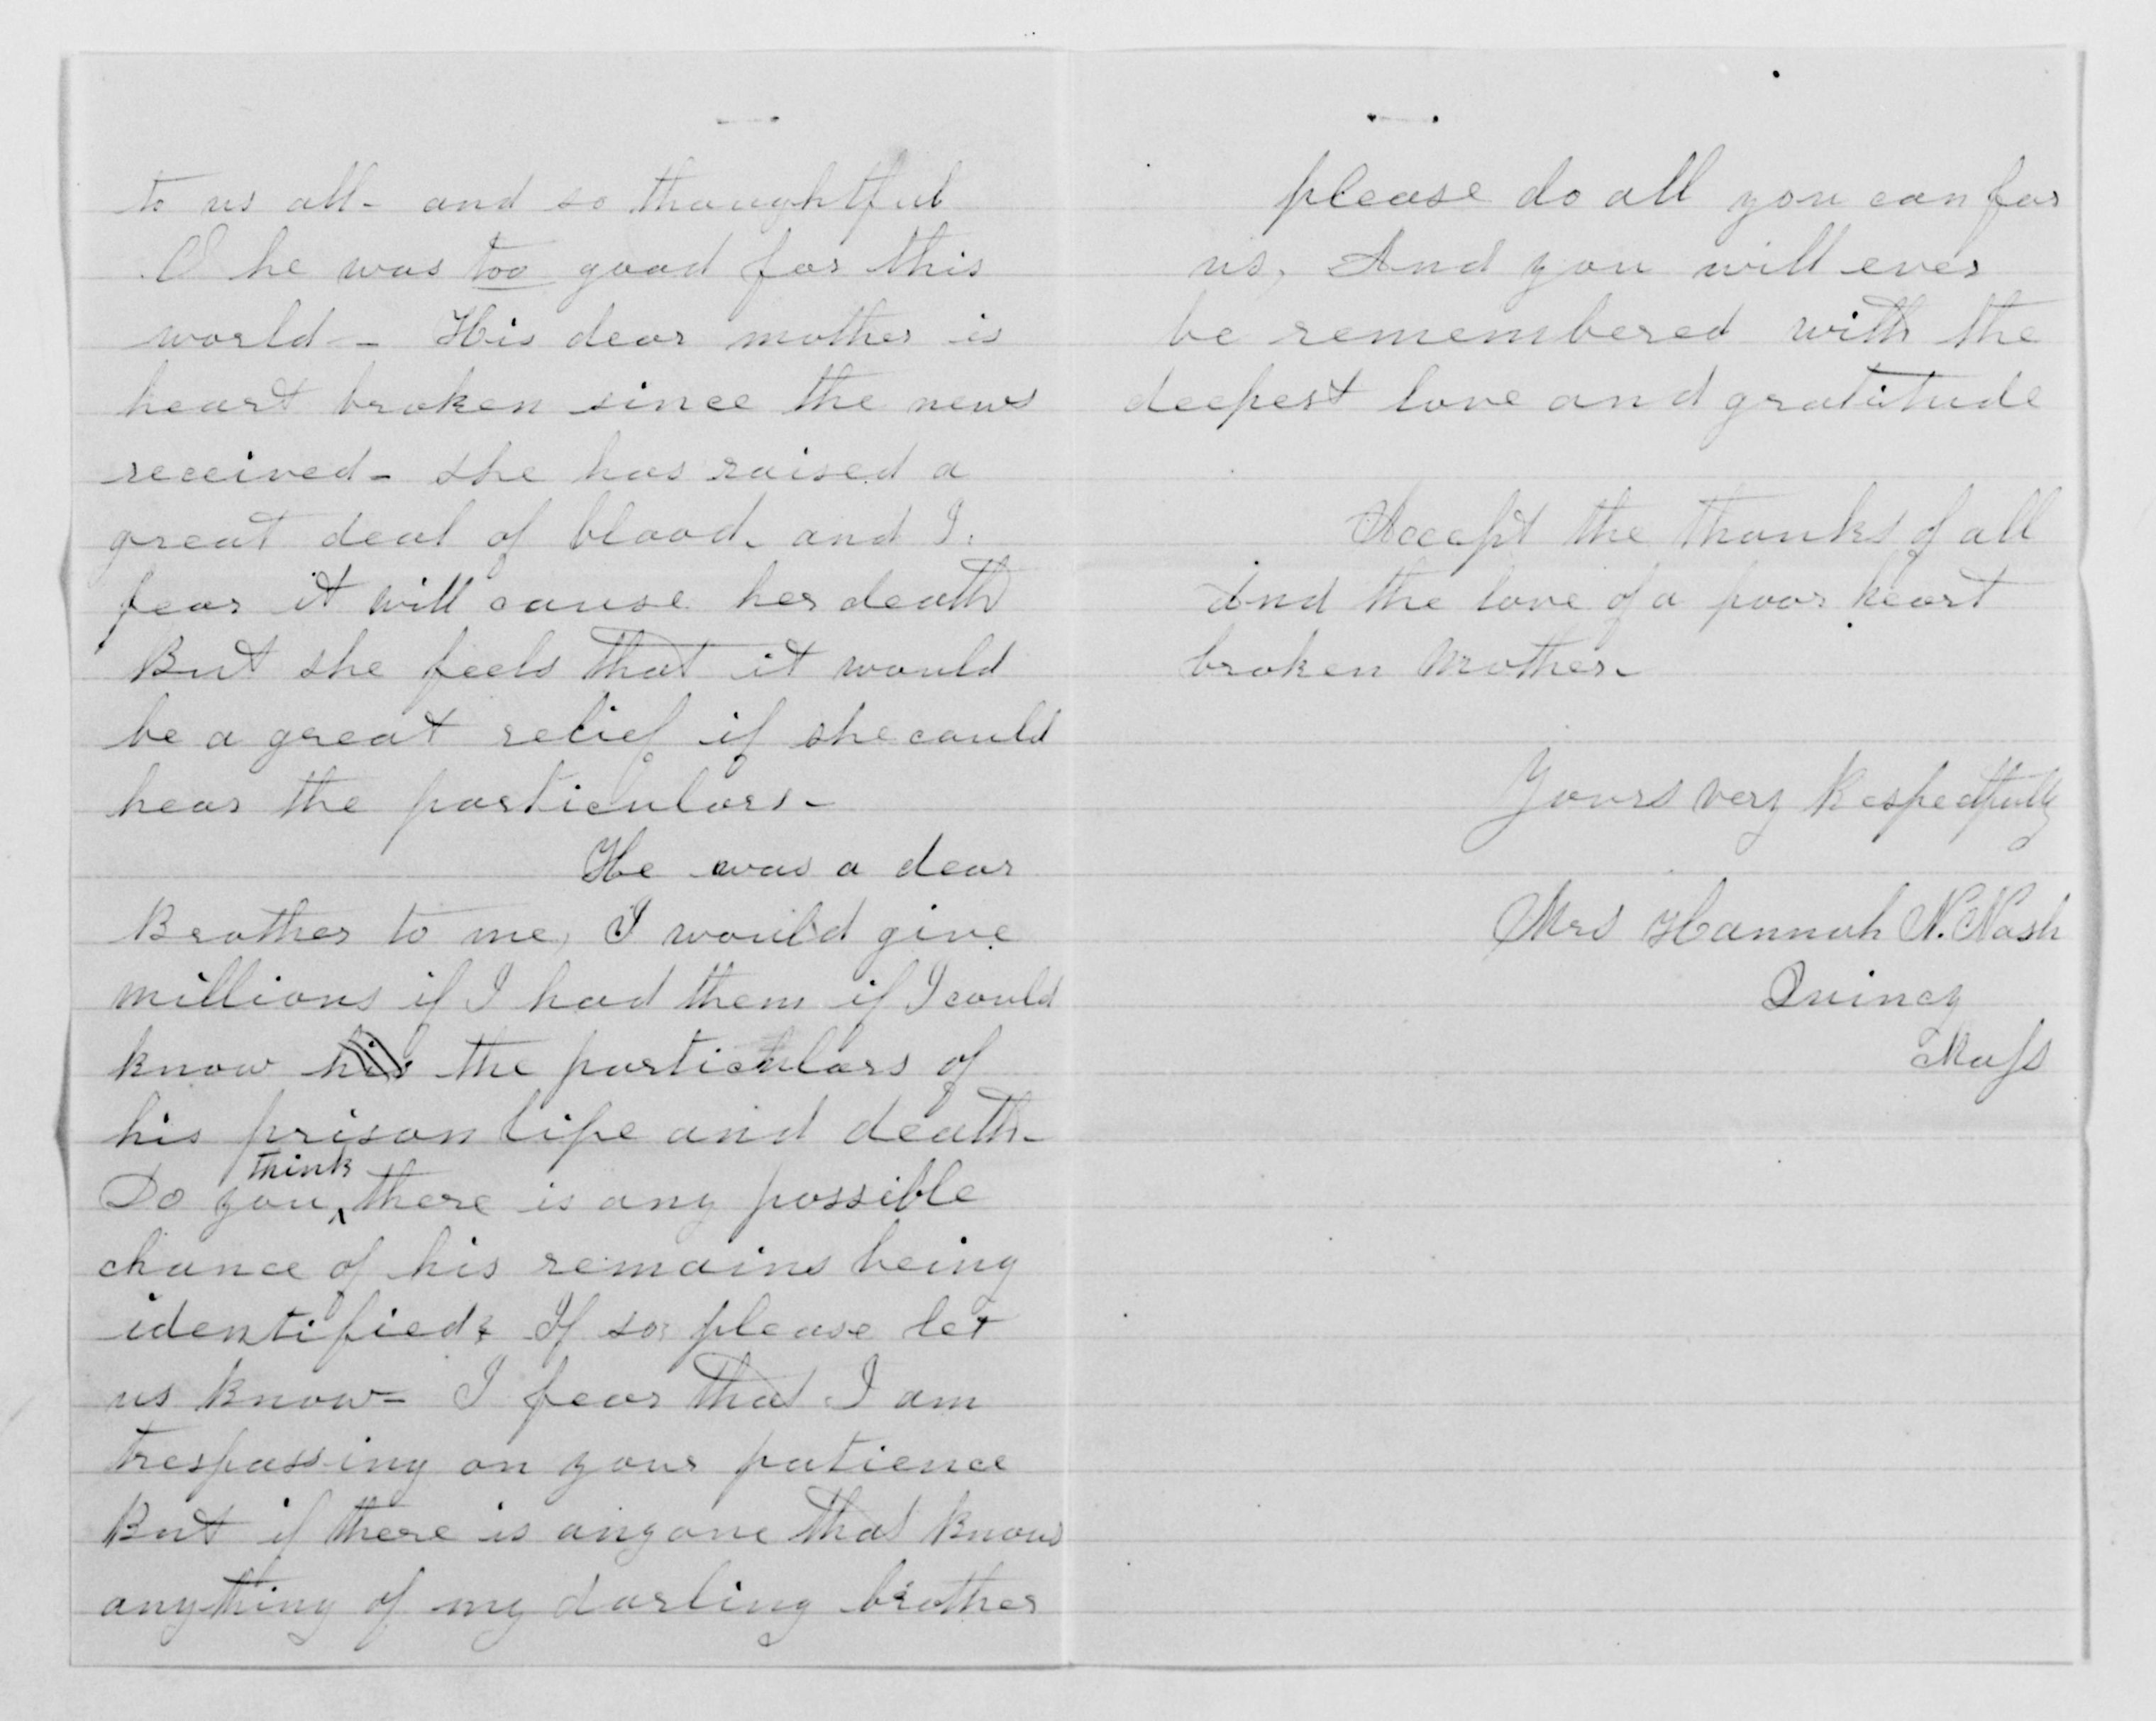 to us all- and so thoughtful
O he was too good for this
world- His dear mother is
heart broken since the news
received- she has raised a
great deal of blood. and I.
fear it will cause her death
But she feels that it would
be a great relief if she could
hear the particulars-
He was a dear
Brother to me, I would give
millions if I had them if I could
know his the particulars of
his prison life and death-
think
Do you ^ there is any possible
chance of his remains being
identified? If so, please let
us know- I fear that I am
trespassing on your patience
But if there is anyone that knows
anything of my darling brother
please do all you can for
us, And you will ever
be remembered with the
deepest love and gratitude
Accept the thanks of all
And the love of a poor heart
broken Mother-
Yours very Respectfully
Mrs Hannah N. Nash
Quincy
Mass